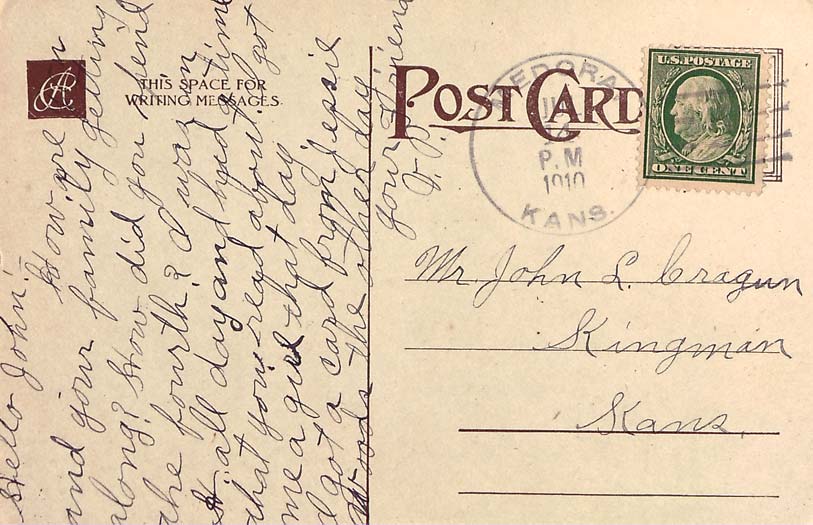 THIS SPACE FOR
WRITING MESSAGES
POST CARD
MEDORA
P.M
1910
KANS.
U.S. POSTAGE
ONE CENT
Hello John!
How are
and your family getting
along? How did you spend
the fourth? I was in
all day and had time
that you read about got
me a girl that day
I got a card from Jessie
Woods the other day
your friend
Mr. John L. Cragun
Kingman
Kans.